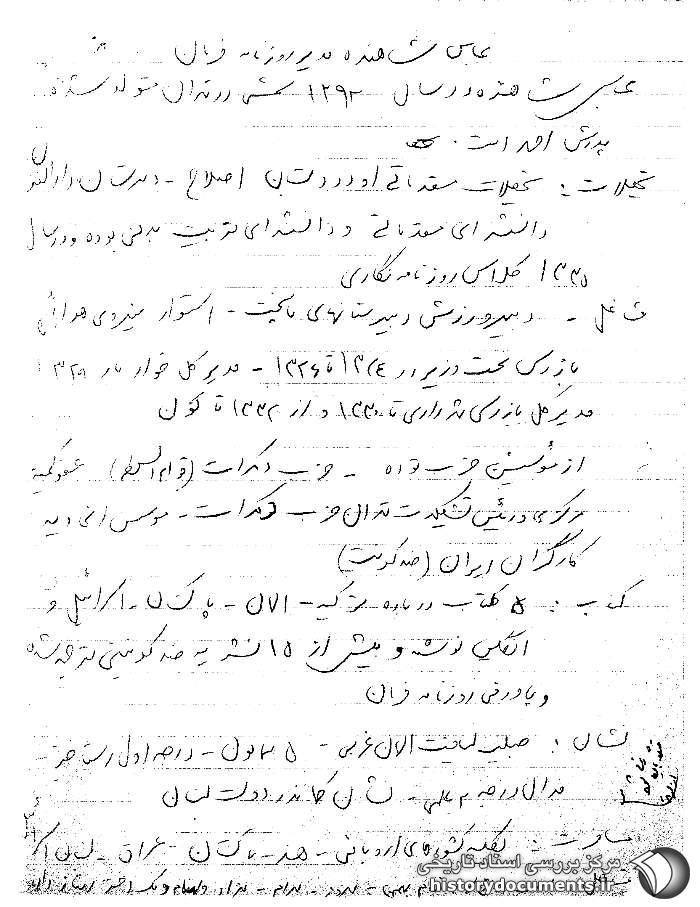 عباس شاهنده مدیر روزنامه فرمان
عباس شاهنده در سال ۱۲۹۲ شمسی در تهران متولد شده
پدرش احمد است.
تحصیلات: تحصیلات مقدماتی او در دبستان اصلاح - دبیرستان دارالفنون
دانشسرای مقدماتی و دانشسرای تربیت بدنی بوده و در سال
۱۳۳۵ کلاس روزنامه نگاری
مشاغل - دبیر ورزش دبیرستانهای پایتخت - استوار نیروی هوائی
بازرس نخست وزیر در ۱۳۲۴ تا ۱۳۲۶ - مدیر کل خواربار ۱۳۲۸
مدیر کل بازرسی شهرداری تا ۱۳۳۰ و از ۱۳۳۲ تا کنون
از مؤسسین حزب توده - حزب دمکرات (قوام السلطنه) عضو کمیته
مرکزی و رئیس تشکیلات تهران حزب دمکرات - موسس اتحادیه
کارگران ایران (ضد کمونیست)
کتاب: ۵ کتاب درباره ترکیه - آلمان - پاکستان - اسرائیل و
انگلیس نوشته و بیش از ۱۵ نشریه ضد کمونیستی ترجمه شده
و پاورقی روزنامه فرمان
نشان: صلیب لیاقت آلمان غربی - ۵ همایون - درجه اول رستاخیز
مدال درجه ۲ علمی - نشان کماندر دولت لبنان
مسافرت: بکلیه کشورهای اروپائی - هند - پاکستان - عراق - لبنان
مرکز بررسی اسناد تاریخی
historydocuments.ir